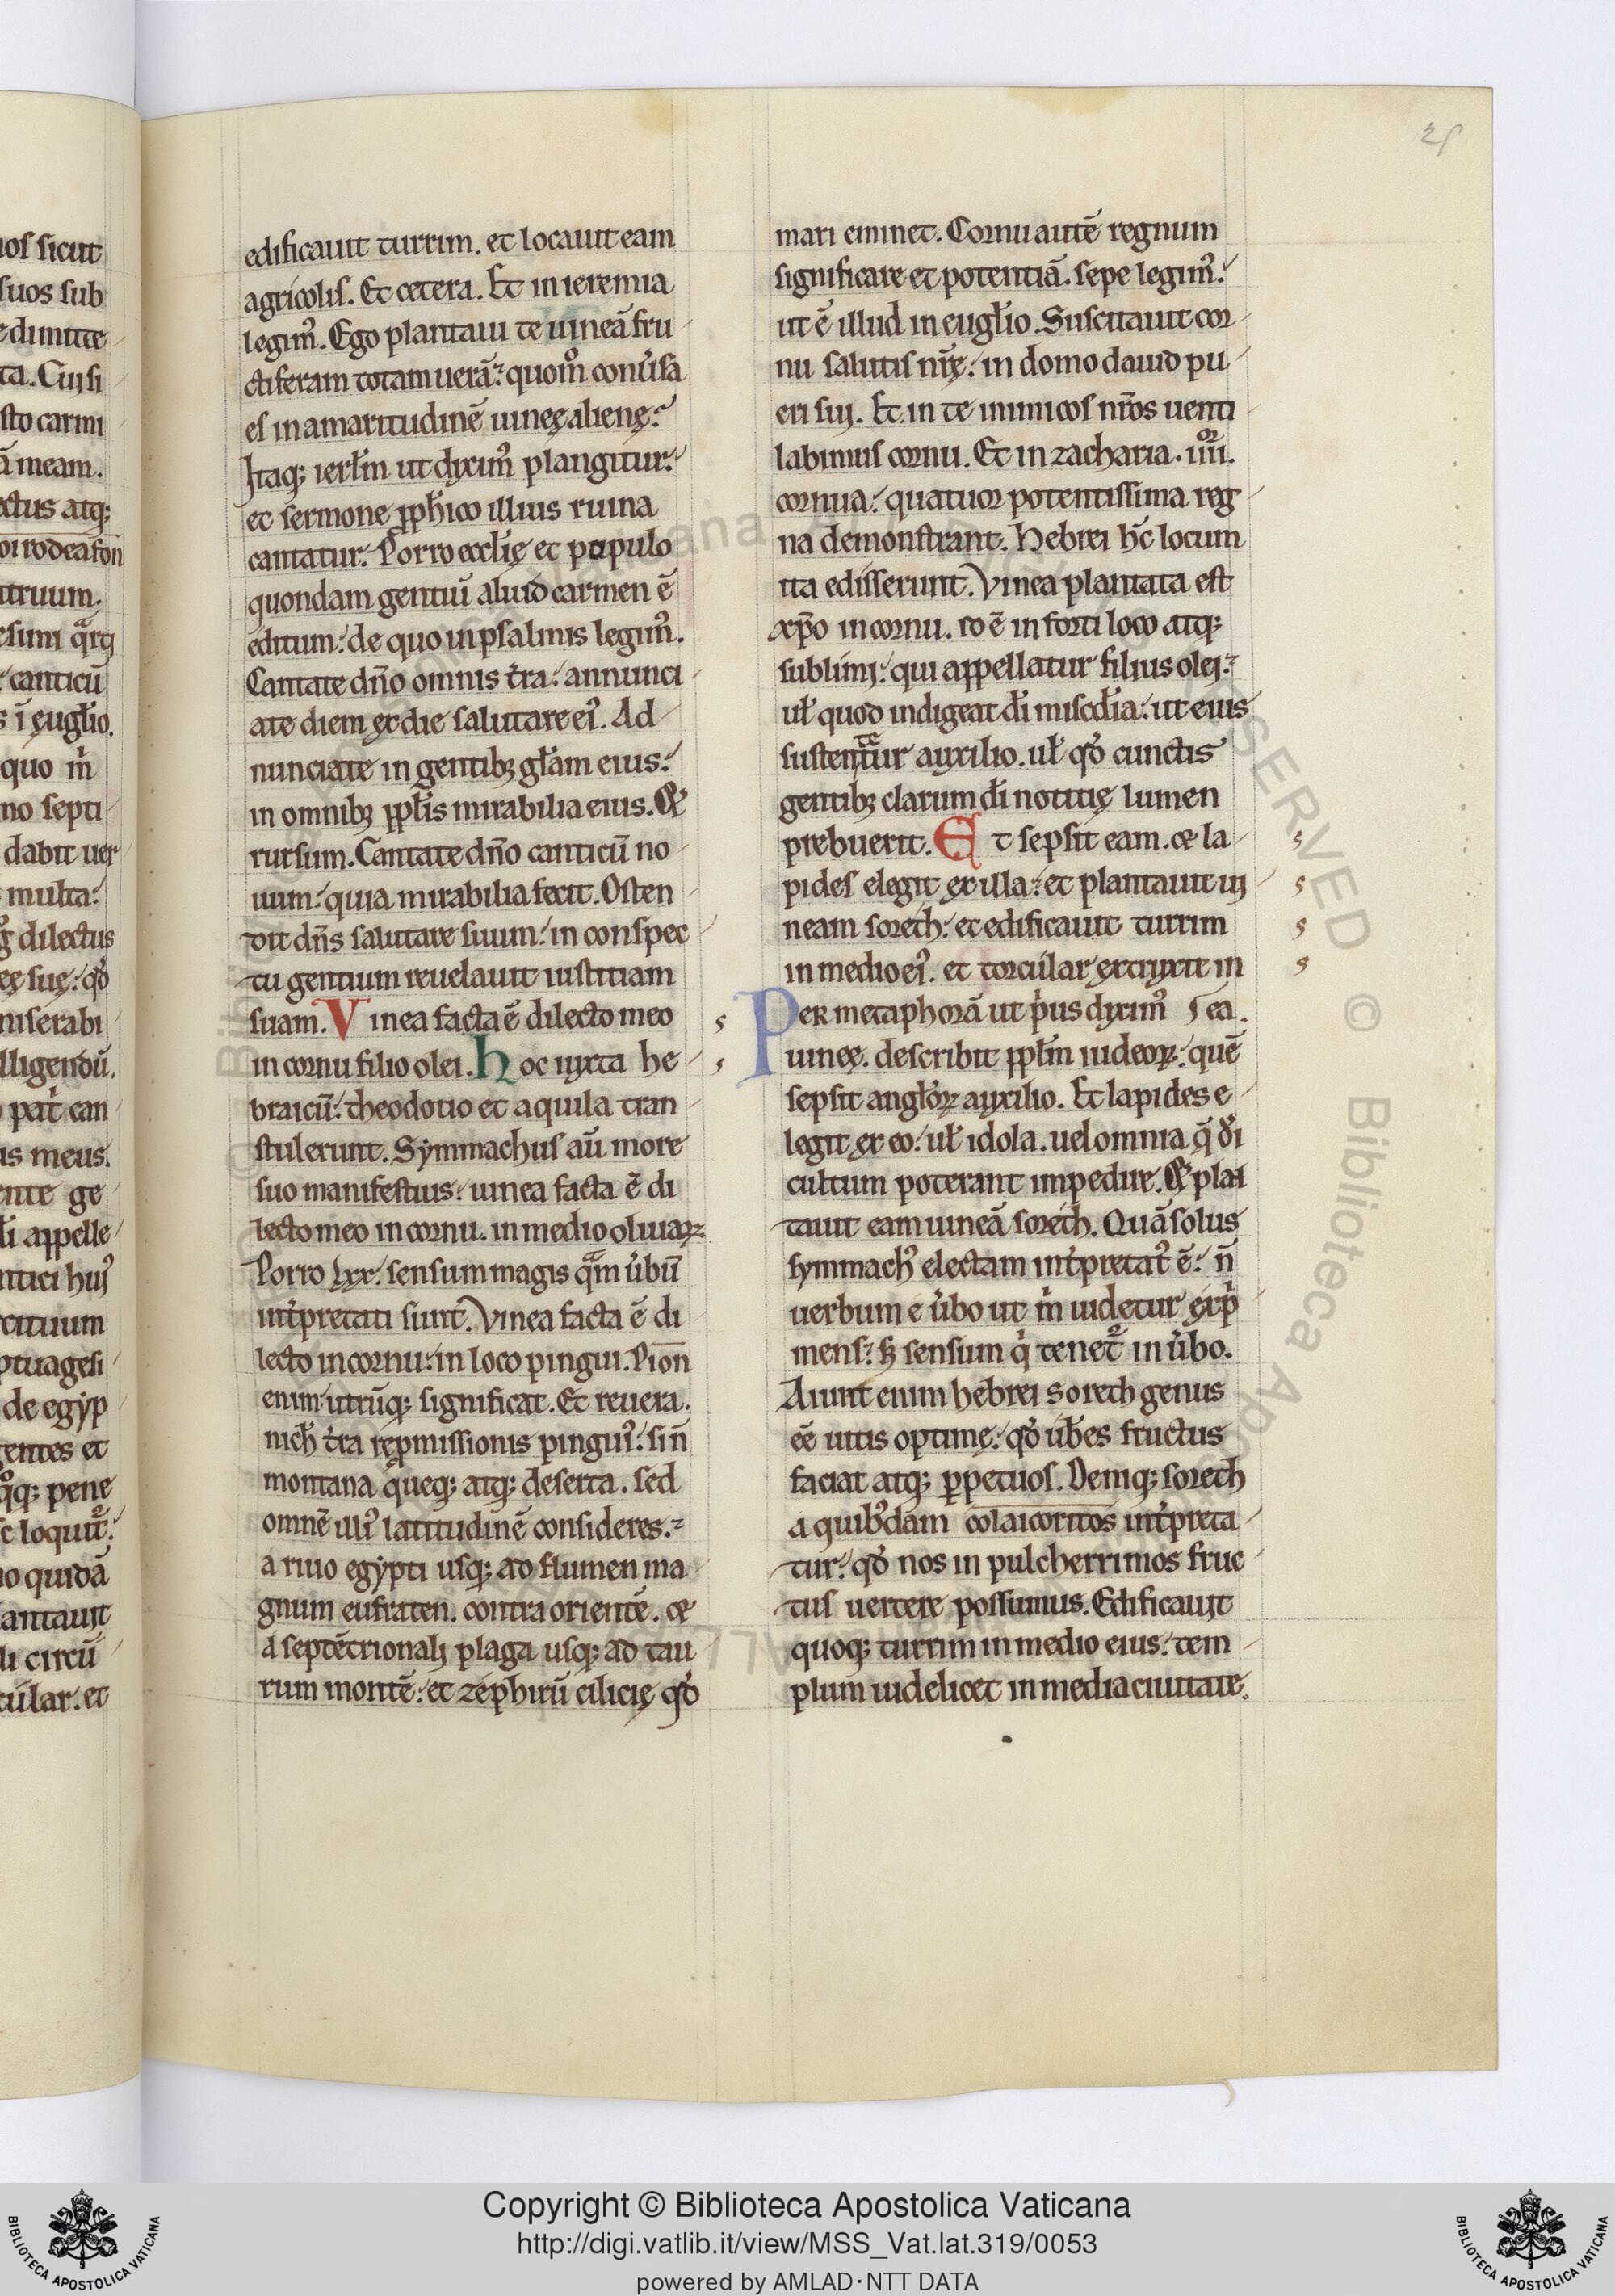 25
edificauit turrim. et locauit eam
agricolis. Et cetera. Et in ieremia
legim᷒. Ego plantaui te uineā fru
ctiferam totam uerā: quom̊ conu̓sa
es in amaritudinē uineę alienę:
Itaq; ierl̄m ut dyxim᷒ plangitur:
et sermone ꝓph̄ico illius ruina
cantatur. Porro eccl̄ię et populo
quondam gentiū aliud carmen ē
editum: de quo in psalmis legim᷒.
Cantate dn̄o omnis t̓ra: annunci
ate diem ex die salutare ei᷒. Ad
nunciate in gentibꝫ gl̄am eius:
in omnibꝫ ppl̄is mirabilia eius. Et
rursum. Cantate dn̄o canticū no
uum: quia mirabilia fecit. Osten
dit dn̄s salutare suum: in conspec
tu gentium reuelauit iustitiam
suam. Vinea facta ē dilecto meo
in cornu filio olei. Hoc iuxta he
braicū: theodotio et aquila tran
stulerunt. Symmachus aū more
suo manifestius: uinea facta ē di
lecto meo in cornu. in medio oliuaꝝ.
Porro lxx. sensum magis qᵃm u̓bū
int̓pretati sunt. Vinea facta ē di
lecto in cornu: in loco pingui. Pīon
enim utrūq; significat. Et reuera.
nich̄ t̓ra repmissionis pingui᷒: si n̄
montana queq; atq; deserta. sed
omnē illi᷒ latitudinē consideres.
a riuo egypti usq; ad flumen ma
gnum eufraten. contra orientē. et
a septētrionali plaga usq; ad tau
rum montē: et zephirū cilicię qd̓
mari eminet. Cornu autē regnum
significare et potentiā. sepe legim᷒:
ut ē illud in eugl̄io. Suscitauit cor
nu salutis nr̄ę: in domo dauid pu
eri sui. Et in te inimicos nr̄os uenti
labimus cornu. Et in zacharia. iiiiᵒʳ.
cornua: quatuor potentissima reg
na demonstrant. Hebrei hc̄ locum
ita edisserunt. Vinea plantata est
xp̄o in cornu. id ē in forti loco atq;
sublimi: qui appellatur filius olei:
ul̄ quod indigeat dī misc̄dia: ut eius
sustentetur auxilio. ul̄ qd̓ cunctis
gentibꝫ clarum dī notitię lumen
prebuerit. Et sepsit eam. et la
pides elegit ex illa: et plantauit ui
neam sorech: et edificauit turrim
in medio ei᷒. et torcular extruxit in
Per metaphorā ut p̓us dyxim᷒ ea.
uineę. describit ppl̄m iudeoꝝ: quē
sepsit angl̄oꝝ auxilio. Et lapides e
legit ex eo: ul̄ idola. uel omnia q̄ dī
cultum poterant impedire. Et plan
tauit eam uineā sorech. Quā solus
symmach᷒ electam int̓pretat᷒ ē: n̄
uerbum e u̓bo ut m̓ uidetur exp̓
mens: sꝫ sensum q̓ tenet᷒ in u̓bo.
Aiunt enim hebrei sorech genus
eē uitis optimę: qd̓ ub̓es fructus
faciat atq; ꝑpetuos. Deniq; sorech
a quibꝰdam colaicoritos int̓preta
tur: qd̓ nos in pulcherrimos fruc
tus uertere possumus. Edificauit
quoq; turrim in medio eius: tem
plum uidelicet in media ciuitate.
Copyright © Biblioteca Apostolica Vaticana
http://digi.vatlib.it/view/MSS_Vat.lat.319/0053
powered by AMLAD·NTT DATA
BIBLIOTECA APOSTOLICA VATICANA
BIBLIOTECA APOSTOLICA VATICANA